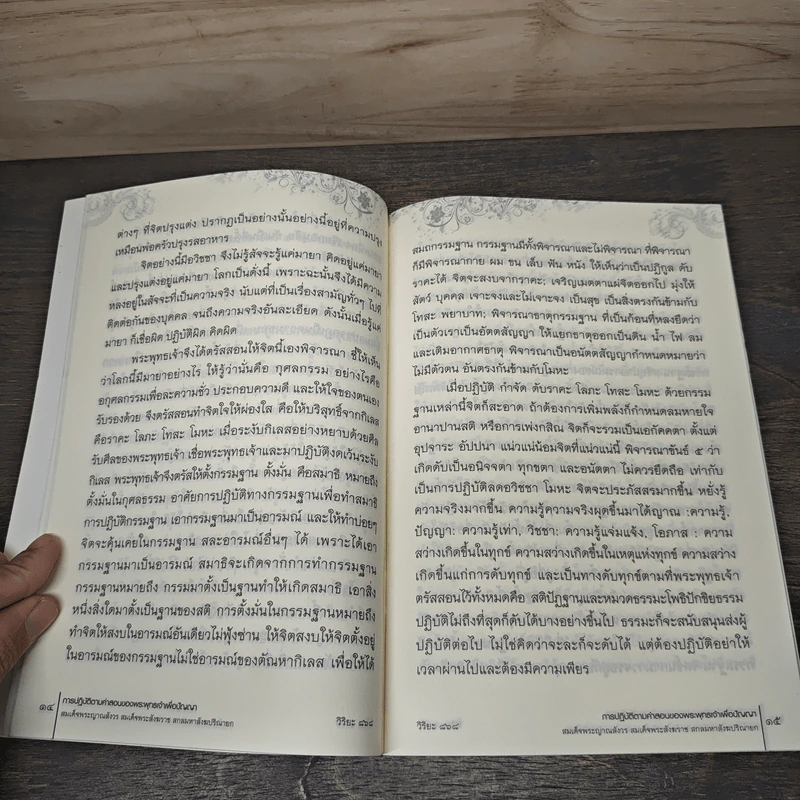 ต่างๆ ที่จิตปรุงแต่ง ปรากฏเป็นอย่างนั้นอย่างนี้อยู่ที่ความปรุง
เหมือนพ่อครัวปรุงรสอาหาร
จิตอย่างนี้มีอวิชชา จึงไม่รู้สัจจะรู้แค่มายา คิดอยู่แค่มายา
และปรุงแต่งอยู่แค่มายา โลกเป็นดั่งนี้ เพราะฉะนั้นจึงได้มีความ
หลงอยู่ในสัจจะที่เป็นความจริง นับแต่ที่เป็นเรื่องสามัญทั่วๆ ไปที่
ติดต่อกันของบุคคล จนถึงความจริงอันละเอียด ดังนั้นเมื่อรู้แค่
มายา ก็เชื่อผิด ปฏิบัติผิด คิดผิด
พระพุทธเจ้าจึงได้ตรัสสอนให้จิตนี้เองพิจารณา ชี้ให้เห็น
ว่าโลกนี้มีมายาอย่างไร ให้รู้ว่านั่นคือ กุศลกรรม อย่างไรคือ
อกุศลกรรมเพื่อละความชั่ว ประกอบความดี และให้ใจของตนเอง
รับรองด้วย จึงตรัสสอนทำจิตใจให้ผ่องใส คือให้บริสุทธิ์จากกิเลส
คือราคะ โลภะ โทสะ โมหะ เมื่อระงับกิเลสอย่างหยาบด้วยศีล
รับศีลของพระพุทธเจ้า เชื่อพระพุทธเจ้าและมาปฏิบัติงดเว้นระงับ
กิเลส พระพุทธเจ้าจึงตรัสให้ตั้งกรรมฐาน ตั้งมั่น คือสมาธิ หมายถึง
ตั้งมั่นในกุศลธรรม อาศัยการปฏิบัติทางกรรมฐานเพื่อทำสมาธิ
การปฏิบัติกรรมฐาน เอากรรมฐานมาเป็นอารมณ์ และให้ทำบ่อยๆ
จิตจะคุ้นเคยในกรรมฐาน สละอารมณ์อื่นๆ ได้ เพราะได้เอา
กรรมฐานมาเป็นอารมณ์ สมาธิจะเกิดจากการทำกรรมฐาน
กรรมฐานหมายถึง กรรมมาตั้งเป็นฐานทำให้เกิดสมาธิ เอาสิ่ง
หนึ่งสิ่งใดมาตั้งเป็นฐานของสติ การตั้งมั่นในกรรมฐานหมายถึง
ทำจิตให้สงบในอารมณ์อันเดียวไม่ฟุ้งซ่าน ให้จิตสงบให้จิตตั้งอยู่
ในอารมณ์ของกรรมฐานไม่ใช่อารมณ์ของตัณหากิเลส เพื่อให้ได้
๑๔
การปฏิบัติตามคำสอนของพระพุทธเจ้าเพื่อปัญญา
สมเด็จพระญาณสังวร สมเด็จพระสังฆราช สกลมหาสังฆปริณายก
วิริยะ ๘๖๘
สมถกรรมฐาน กรรมฐานมีทั้งพิจารณาและไม่พิจารณา ที่พิจารณา
ก็มีพิจารณากาย ผม ขน เล็บ ฟัน หนัง ให้เห็นว่าเป็นปฏิกูล ดับ
ราคะได้ จิตจะสงบจากราคะ; เจริญเมตตาแผ่จิตออกไป มุ่งให้
สัตว์ บุคคล เจาะจงและไม่เจาะจง เป็นสุข เป็นสิ่งตรงกันข้ามกับ
โทสะ พยาบาท; พิจารณาธาตุกรรมฐาน ที่เป็นก้อนที่หลงยึดว่า
เป็นตัวเราเป็นอัตตสัญญา ให้แยกธาตุออกเป็นดิน น้ำ ไฟ ลม
และเติมอากาศธาตุ พิจารณาเป็นอนัตตสัญญากำหนดหมายว่า
ไม่มีตัวตน อันตรงกันข้ามกับโมหะ
เมื่อปฏิบัติ กำจัด ดับราคะ โลภะ โทสะ โมหะ ด้วยกรรม
ฐานเหล่านี้จิตก็สะอาด ถ้าต้องการเพิ่มพลังก็กำหนดลมหายใจ
อานาปานสติ หรือการเพ่งกสิณ จิตก็จะรวมเป็นเอกัคคตา ตั้งแต่
อุปจาระ อัปปนา แน่วแน่น้อมจิตที่แน่วแน่นี้ พิจารณาขันธ์ ๕ ว่า
เกิดดับเป็นอนิจจตา ทุกขตา และอนัตตา ไม่ควรยึดถือ เท่ากับ
เป็นการปฏิบัติลดอวิชชา โมหะ จิตจะประภัสสรมากขึ้น หยั่งรู้
ความจริงมากขึ้น ความรู้ความจริงผุดขึ้นมาได้ญาณ :ความรู้,
ปัญญา: ความรู้เท่า, วิชชา: ความรู้แจ่มแจ้ง, โอภาส : ความ
สว่างเกิดขึ้นในทุกข์ ความสว่างเกิดขึ้นในเหตุแห่งทุกข์ ความสว่าง
เกิดขึ้นแก่การดับทุกข์ และเป็นทางดับทุกข์ตามที่พระพุทธเจ้า
ตรัสสอนไว้ทั้งหมดคือ สติปัฏฐานและหมวดธรรมะโพธิปักขิยธรรม
ปฏิบัติไม่ถึงที่สุดก็ดับได้บางอย่างขึ้นไป ธรรมะก็จะสนับสนุนส่งผู้
ปฏิบัติต่อไป ไม่ใช่คิดว่าจะละก็จะดับได้ แต่ต้องปฏิบัติอย่าให้
เวลาผ่านไปและต้องมีความเพียร
วิริยะ ๘๖๘
การปฏิบัติตามคำสอนของพระพุทธเจ้าเพื่อปัญญา
สมเด็จพระญาณสังวร สมเด็จพระสังฆราช สกลมหาสังฆปริณายก
๑๕